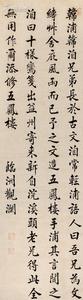 韓浦韓洎兄弟長於古文洎常輕浦語人曰吾兄為文
繩縛草舍庇雨而已予之為文造五鳳樓手浦聞其言
洎曰十樣鸞箋出益州寄來新自浣溪頭老兄得此全
無用作爾添修五鳳樓